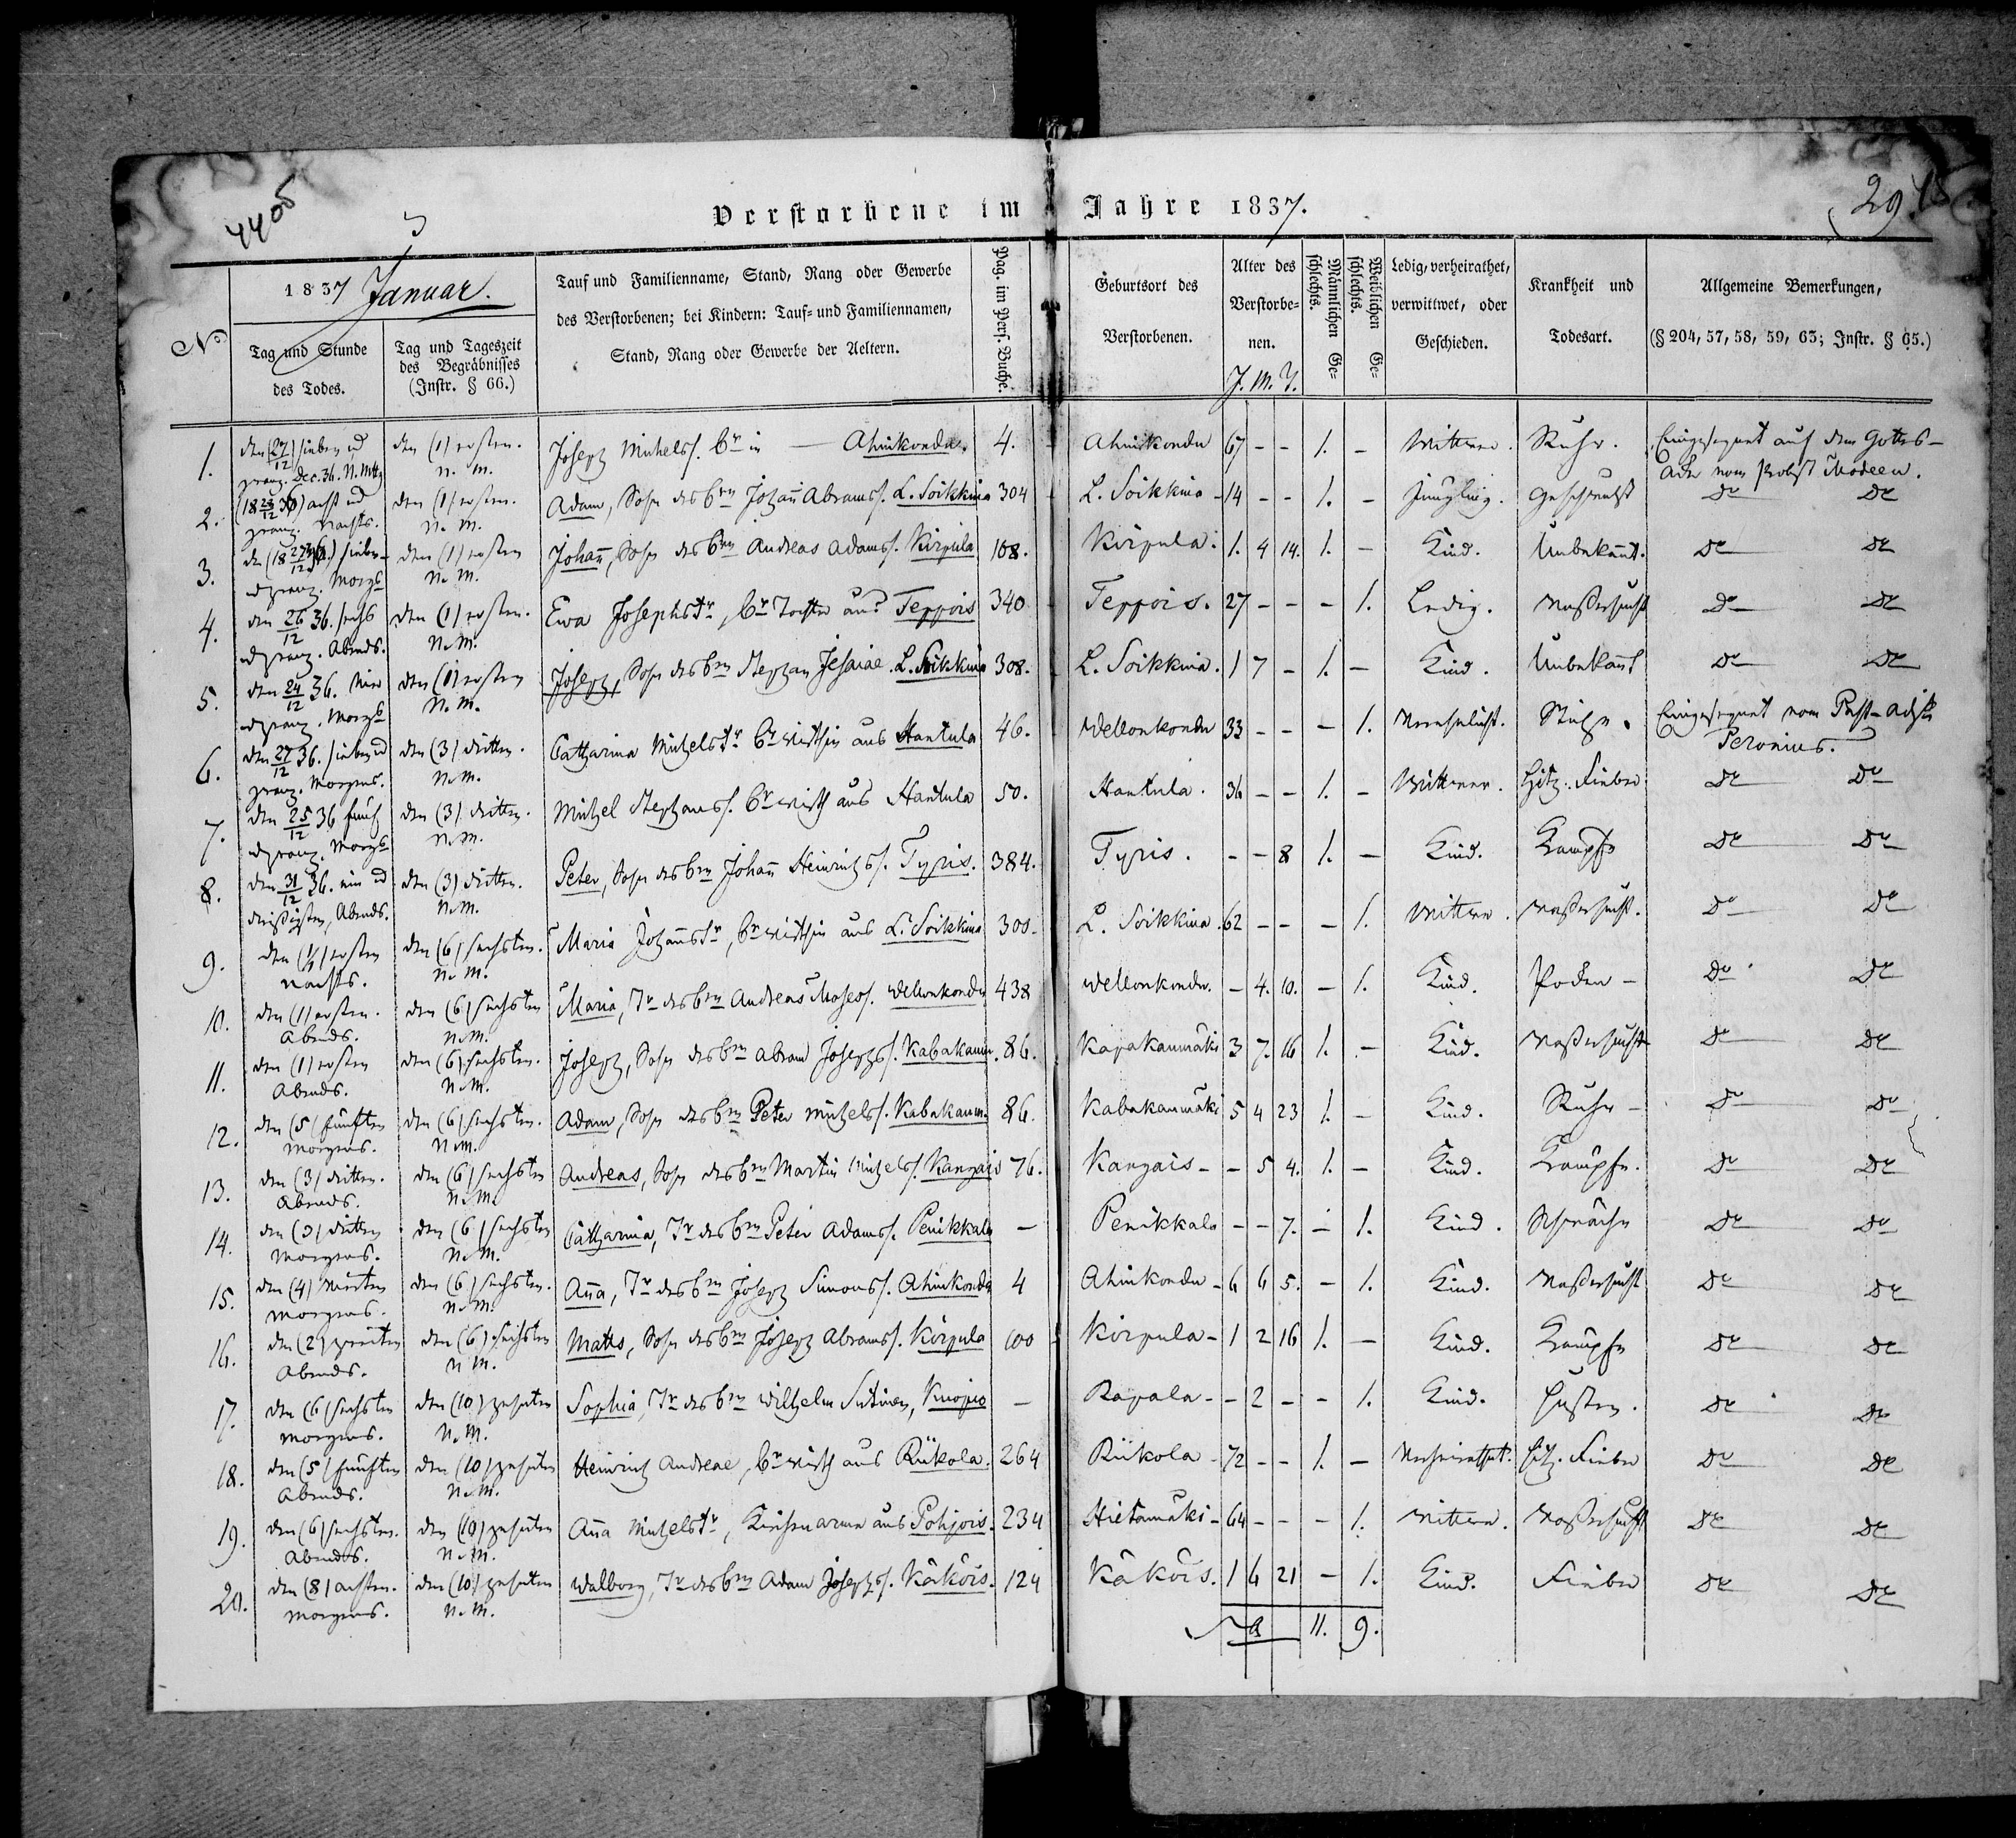 4408
29
Verstorbene im Jahre 1837.
No
1837 Januar.
Tag und Stunde des Todes.
Tag und Tageszeit des Begräbnisses (Instr. § 66.)
Tauf und Familienname, Stand, Rang oder Gewerbe
des Verstorbenen; bei Kindern: Tauf- und Familiennamen,
Stand, Rang oder Gewerbe der Aeltern.
Pag. im Pers. Buche.
Geburtsort des Verstorbenen.
Alter des Verstorbenen.
J. M. T.
Männlichen Geschlechts.
Weiblichen Geschlechts.
Ledig, verheirathet, verwittwet, oder Geschieden.
Krankheit und Todesart.
Allgemeine Bemerkungen,
(§ 204, 57, 58, 59, 63; Instr. § 65.)
1. den (27/12) sieben ud zwanz. Dec. 36. N. Mttg den (1) ersten. N. M. Joseph Michelss. Br in — Ahinkondu. 4. Ahinkondu 67 - - 1. - Wittwer. Ruhr. Eingesegnet auf dem Gottes-
Acker vom Probst Modeen.
2. (18 28/12 36) acht ud zwanz. Nachts. den (1) ersten. N. M. Adam, Sohn des Brn Johan̄ Abramss. L. Soikkina 304 L. Soikkina 14 - - 1. - Jüngling. Geschwulst do do
3. den (18 27/12 36.) sieben- ud zwanz. Morgs den (1) ersten N. M. Johan̄, Sohn des Brn Andreas Adamss. Kirpula 108. Kirpula. 1. 4 14. 1. - Kind. Unbekan̄t. do do
4. den 26/12 36. sechs ud zwanz. Abends. den (1) ersten. N. M. Ewa Josephstr, Br Tochter aus Teppois 340 Teppois. 27 - - - 1. Ledig. Wassersucht do do
5. den 24/12 36. vier ud zwanz. Morgs den (1) ersten N. M. Joseph, Sohn des Brn Stephan Jesaiae. L. Soikkina 308. L. Soikkina. 1 7 - 1. - Kind. Unbekan̄t do do
6. den 27/12 36. sieben ud zwanz. Morgens. den (3) dritten. N. M. Catharina Michelstr Br Wirthin aus Hantula 46. Wellonkondu 33 - - - 1. Verehelicht. Eingesegnet vom Past. Adjt
Peronius.
7. den 25/12 36 fünf ud zwanz. Morgs den (3) dritten. N. M. Michel Stephanss. Br Wirth aus Hantula 50. Hantula. 36 - - 1. - Wittwer. Hitz. Fieber do do
8. den 31/12 36. ein ud dreissigsten, Abends. den (3) dritten. N. M. Peter, Sohn des Brn Johan̄ Heinrichss. Tyris. 384. Tyris. - - 8 1. - Kind. Krämpfe do do
9. den (1/1) ersten Nachts. den (6) sechsten. N. M. Maria Johan̄str, Br Wirthin aus L. Soikkina 300. L. Soikkina. 62 - - - 1. Wittwe. Wassersucht. do do
10. den (1) ersten. Abends. den (6) sechsten N. M. Maria, Tr des Brn Andreas Mosess. Wellonkondu 438 Wellonkondu. - 4. 10. - 1. Kind. Pocken - do do
11. den (1) ersten Abends. den (6) sechsten. N. M. Joseph, Sohn des Brn Abram Josephss. Kabakanm. 86. Kapakanmäki 3 7. 16 1. - Kind. Wassersucht do do
12. den (5) fünften Morgens. den (6) sechsten. N. M. Adam, Sohn des Brn Peter Michelss. Kabakanm. 86. Kabakanmäki 5 4 23 1. - Kind. Ruhr - do do
13. den (3) dritten. Abends. den (6) sechsten N. M. Andreas, Sohn des Brn Martin Michelss. Kangais 76. Kangais - - 5 4. 1. - Kind. Krämpfe. do do
14. den (3) dritten Morgens. den (6) sechsten N. M. Catharina, Tr des Brn Peter Adamss. Penikkala — Penikkala - - 7. - 1. Kind. Schwäche do do
15. den (4) vierten Morgens. den (6) sechsten. N. M. An̄a, Tr des Brn Joseph Simonss. Ahinkondu 4 Ahinkondu - 6 6 5. - 1. Kind. Wassersucht do do
16. den (2) zweiten Abends. den (6) sechsten N. M. Matts, Sohn des Brn Joseph Abramss. Kirpula 100 Kirpula - 1 2 16 1. - Kind. Krämpfe do do
17. den (6) sechsten Morgens. den (10) zehnten N. M. Sophia, Tr des Brn Wilhelm Sutinen, Kuopio — Rapala - - 2 - - 1. Kind. Husten. do do
18. den (5) fünften Abends. den (10) zehnten N. M. Heinrich Andreae, Br Wirth aus Riikola. 264 Riikola - 72 - - 1. - Verheirathet. Hitz. Fieber do do
19. den (6) sechsten. Abends. den (10) zehnten N. M. An̄a Michelstr, Kirchenarme aus Pohjois. 234 Hietamäki - 64 - - - 1. Wittwe. Wassersucht do do
20. den (8) achten. Morgens. den (10) zehnten N. M. Walborg, Tr des Brn Adam Josephss. Käköis. 124 Käköis. 1 6 21 - 1. Kind. Fieber do do
11. 9.